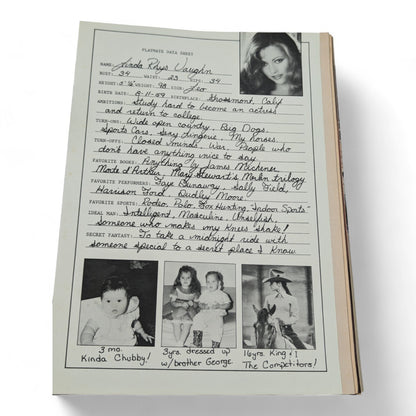 PLAYMATE DATA SHEET
NAME: Linda Rhys Vaughn
BUST: 34 WAIST: 23 HIPS: 34
HEIGHT: 5'½" WEIGHT: 98 SIGN: Leo
BIRTH DATE: 8-11-59 BIRTHPLACE: Grossmont, Calif
AMBITIONS: Study hard to become an actress
and return to college
TURN-ONS: Wide open country, Big Dogs,
Sports Cars, Sexy lingerie, My horses.
TURN-OFFS: Closed minds, War, People who
don't have anything nice to say
FAVORITE BOOKS: Anything by James Michener
Morte d'Arthur, Mary Stewart's Merlin trilogy
FAVORITE PERFORMERS: Faye Dunaway, Sally Field,
Harrison Ford, Dudley Moore
FAVORITE SPORTS: Rodeo, Polo, Fox Hunting, Indoor Sports
IDEAL MAN: Intelligent, Masculine, Unselfish,
Someone who makes my Knees Shake!
SECRET FANTASY: To take a midnight ride with
someone special to a secret place I Know
3 mo.
Kinda Chubby!
3yrs. dressed up
w/brother George
16yrs. King & I
The Competitors!